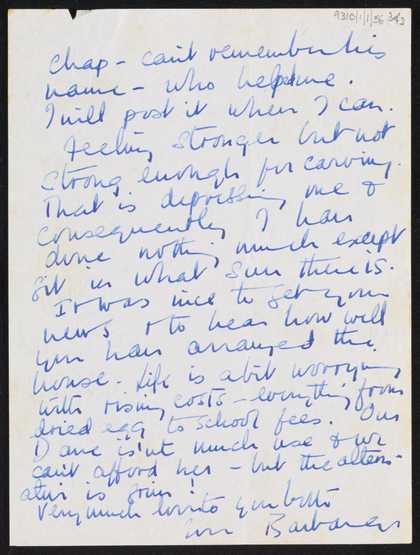 9310/1/1/56 3 of 3
Chap - can't remember his
name - who helped me.
I will post it when I can.
Feeling stronger but not
strong enough for carving.
That is depressing me &
consequently I have
done nothing much except
sit in what sun there is.
It was nice to get your
news & to hear how well
you have arranged the
house. Life is a bit worrying
with rising costs - everything from
dried egg to school fees. Our
Dane isn't much use & we
can't afford her - but the altern-
ative is Join!
Very much love to you both
from Barbara